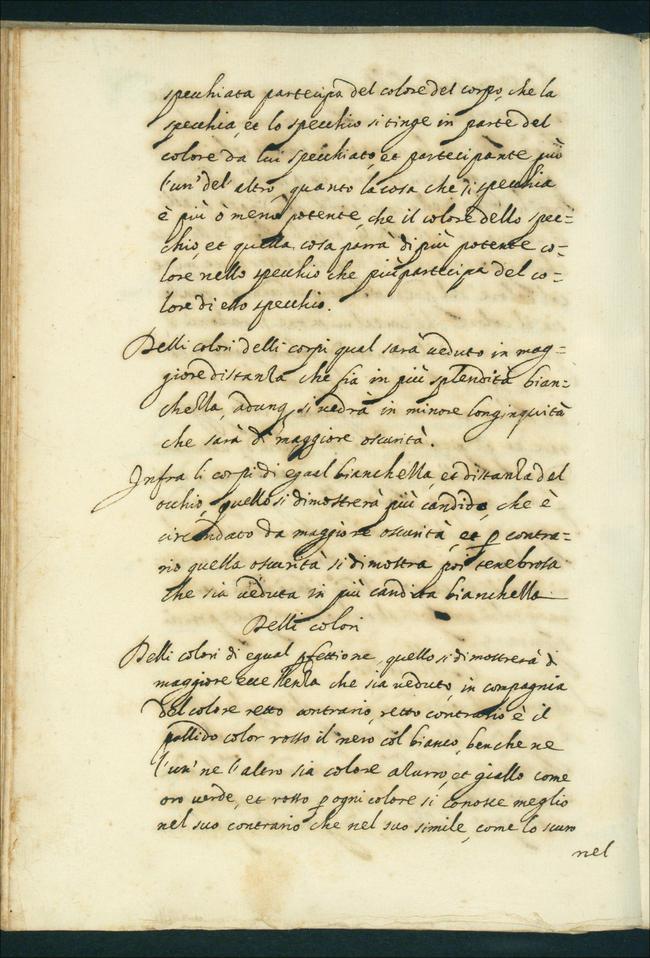 specchiata partecipa del colore del corpo, che la
specchia, et lo specchio si tinge in parte del
colore da lui specchiato, et partecipante più
l'un' del' altro, quanto la cosa che si specchia
è più ò meno potente, che il colore dello spec=
chio, et quella cosa parrà di più potente co=
lore nello specchio che più partecipa del co=
lore di esso specchio.
Delli colori delli corpi qual sarà ueduto in mag=
giore distanza che sia in più splendita bian=
chezza, adunq si uedrà in minore longinquità
che sarà di maggiore oscurità.
Infra li corpi di egual bianchezza, et distanza del
occhio, quello si dimostrerà più candido, che è
circondato da maggiore oscurità, et p contra=
rio quella oscurità si dimostra poi tenebrosa
che sia ueduta in più candita bianchezza
Delli colori
Delli colori di egual pfettione, quello si dimostrerà di
maggiore eccellenza che sia ueduto, in compagnia
del colore retto contrario, retto contrario è il
pallido color rosso il nero col bianco, benche ne
l'un' ne l'altro sia colore azurro, et giallo come
oro uerde, et rosso p ogni colore si conosce meglio
nel suo contrario che nel suo simile, come lo scuro
nel